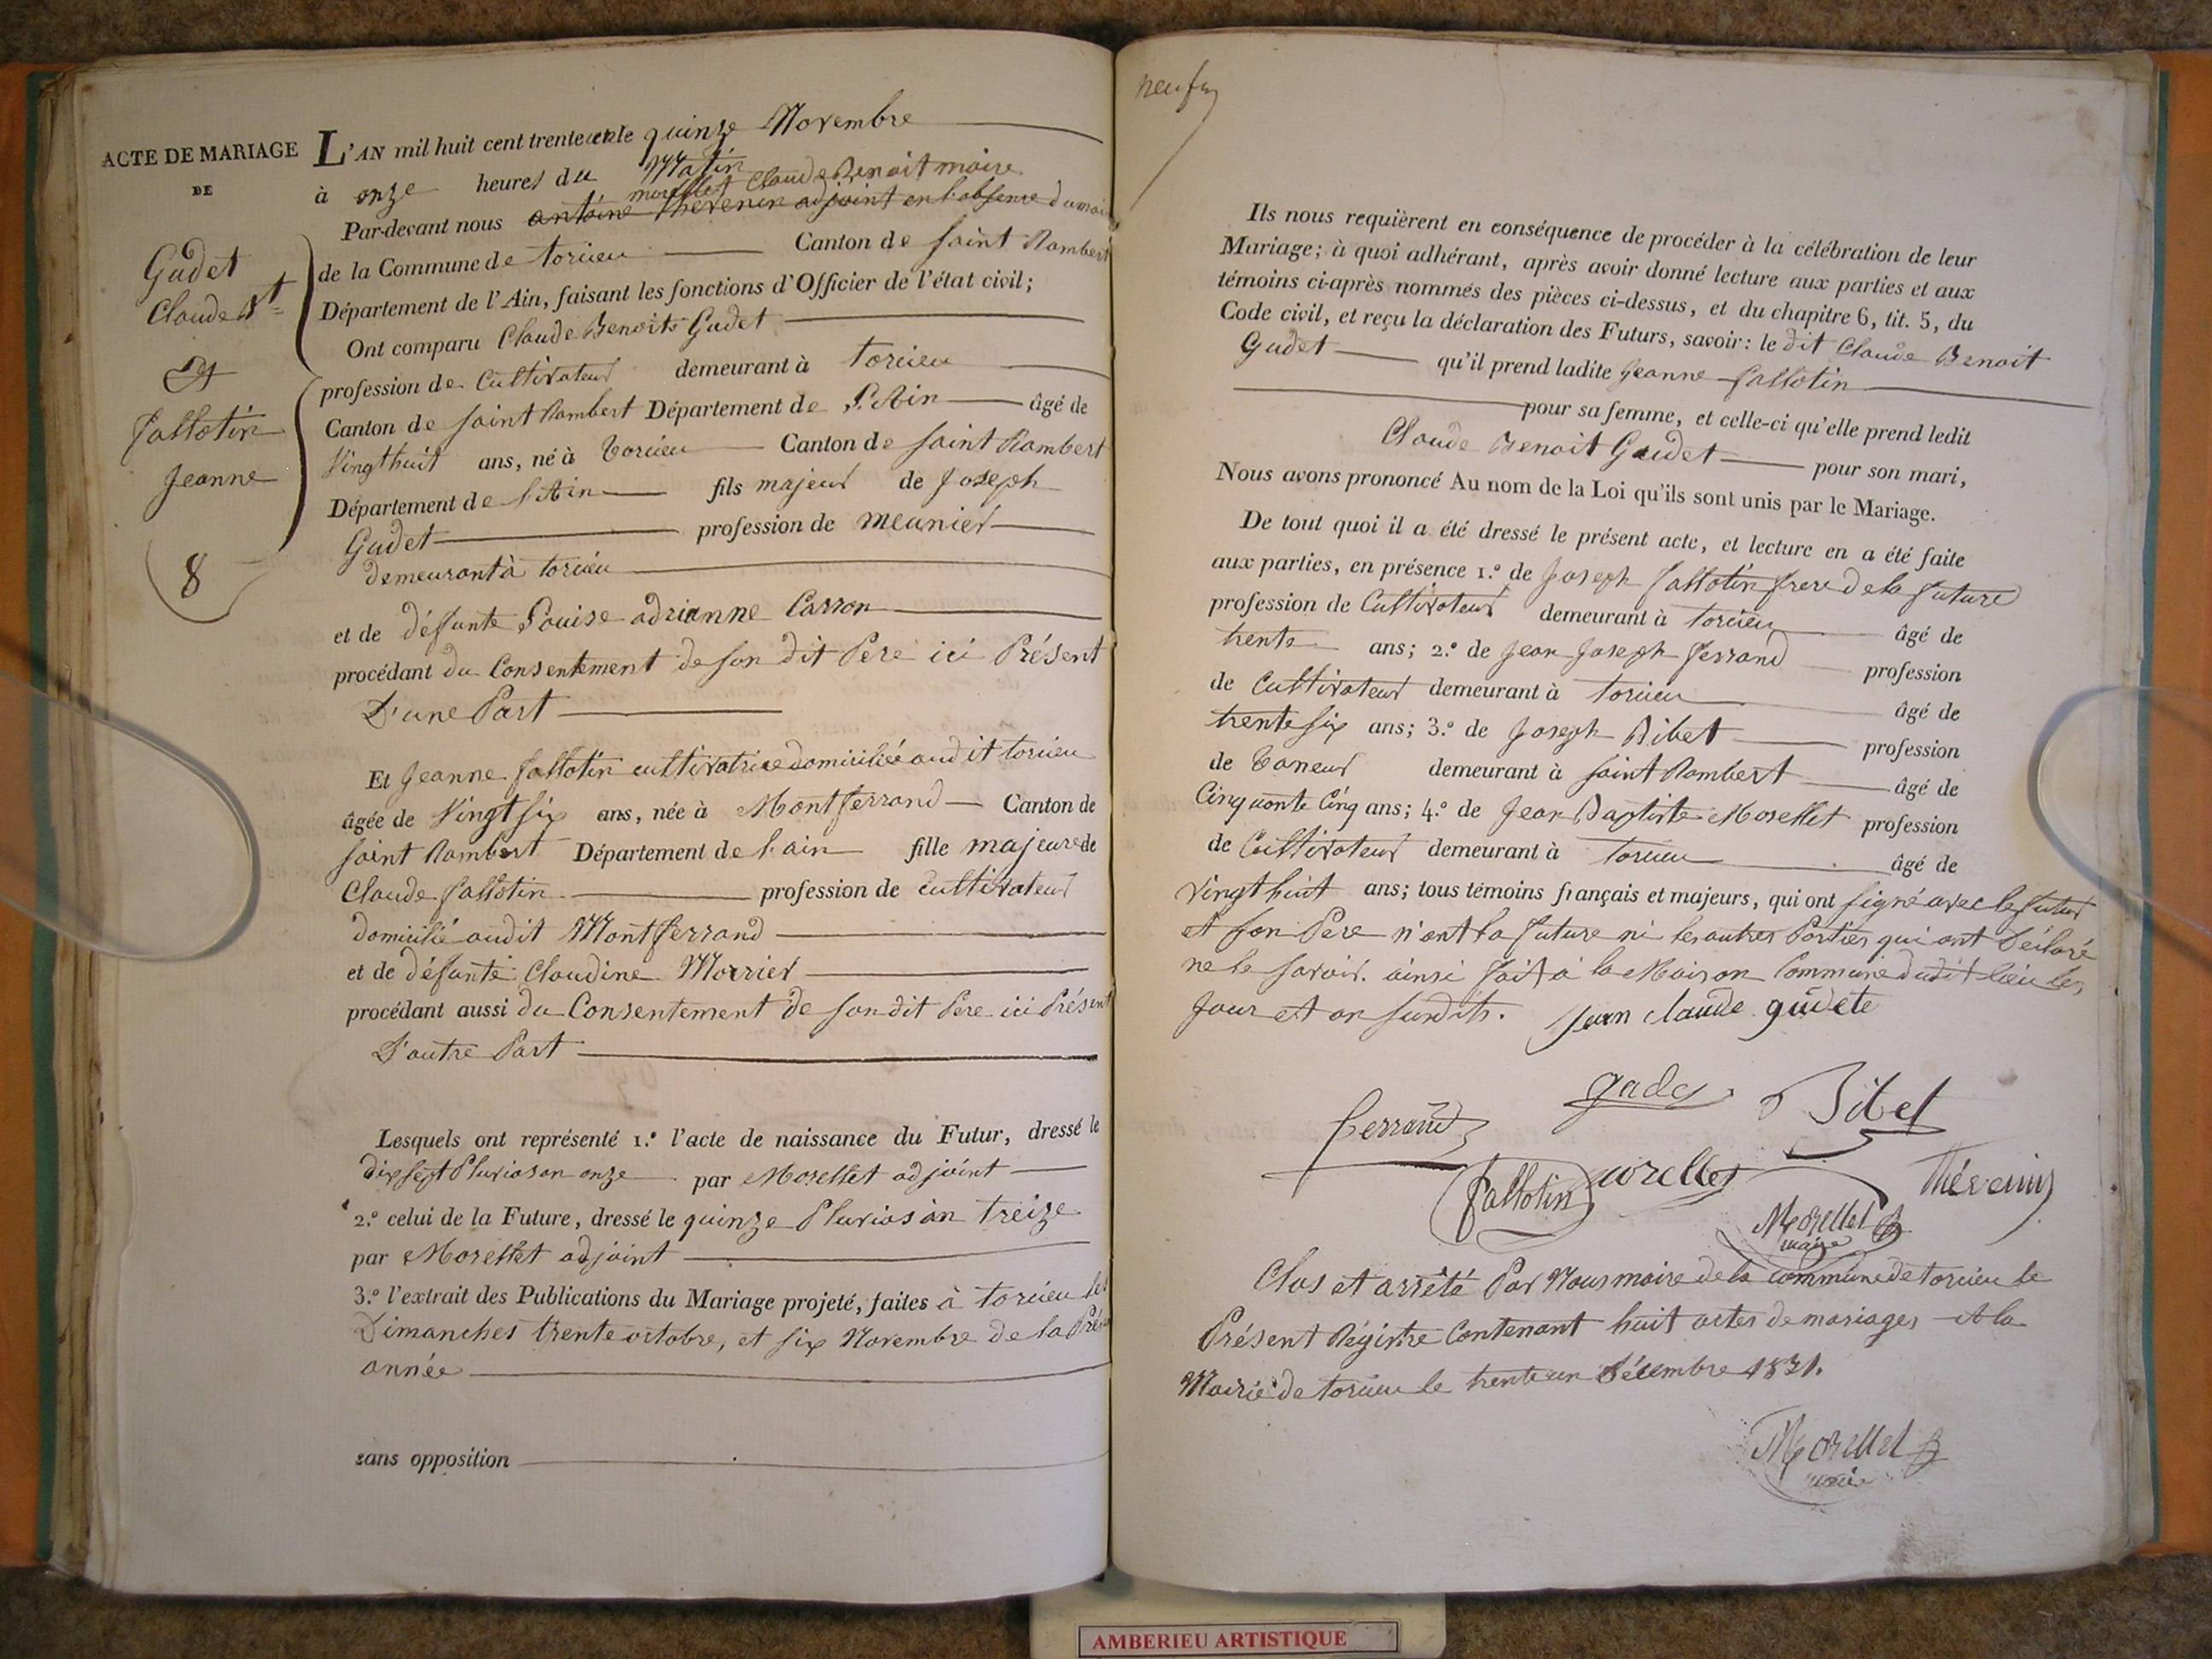 ACTE DE MARIAGE
DE
Gudet
Claude Bt
et
Fallotin
Jeanne
8
L'AN mil huit cent trente et un le quinze Novembre
à onze heures du Matin
morellet Claude Benoit maire
Par-devant nous antoine thevenin adjoint en l'absence du maire
de la Commune de torcieu Canton de saint Rambert
Département de l'Ain, faisant les fonctions d'Officier de l'état civil;
Ont comparu Claude Benoit Gudet
profession de Cultivateur demeurant à torcieu
Canton de saint Rambert Département de L'Ain âgé de
Vingt huit ans, né à torcieu Canton de saint Rambert
Département de l'Ain fils majeur de Joseph
Gudet profession de meunier
demeurant à torcieu
et de défunte Louise adrianne Carron
procédant du Consentement de son dit Pere ici Présent
D'une Part
Et Jeanne fallotin cultivatrice domiciliée audit torcieu
âgée de Vingt six ans, née à Montferrand Canton de
saint Rambert Département de l'ain fille majeure de
Claude fallotin profession de cultivateur
domicilié audit Montferrand
et de défunte Claudine Morrier
procédant aussi du Consentement de son dit Pere ici Présent
D'autre Part
Lesquels ont représenté 1.º l'acte de naissance du Futur, dressé le
dix sept Pluvios an onze par Morellet adjoint
2.º celui de la Future, dressé le quinze Pluvios an treize
par Morellet adjoint
3.º l'extrait des Publications du Mariage projeté, faites à torcieu les
Dimanches trente octobre, et six Novembre de la
année
sans opposition
neuf
Ils nous requièrent en conséquence de procéder à la célébration de leur
Mariage; à quoi adhérant, après avoir donné lecture aux parties et aux
témoins ci-après nommés des pièces ci-dessus, et du chapitre 6, tit. 5, du
Code civil, et reçu la déclaration des Futurs, savoir: le dit Claude Benoit
Gudet qu'il prend ladite Jeanne fallotin
pour sa femme, et celle-ci qu'elle prend ledit
Claude Benoit Gudet pour son mari,
Nous avons prononcé Au nom de la Loi qu'ils sont unis par le Mariage.
De tout quoi il a été dressé le présent acte, et lecture en a été faite
aux parties, en présence 1.º de Joseph fallotin frere de la future
profession de Cultivateur demeurant à torcieu âgé de
trente ans; 2.º de Jean Joseph ferrand profession
de Cultivateur demeurant à torcieu âgé de
trente six ans; 3.º de Joseph Bibet profession
de taneur demeurant à saint Rambert âgé de
Cinquante Cinq ans; 4.º de Jean Baptiste Morellet profession
de Cultivateur demeurant à torcieu âgé de
vingt huit ans; tous témoins français et majeurs, qui ont signé avec le futur
et son Pere n'ont la future ni les autres Parties qui ont Déclaré
ne le savoir. ainsi fait à la Maison Commune dudit lieu les
jour et an susdits. jean claude gudete
gudet Bibet
ferrand
fallotin morellet Thévenin
Morellet
maire
Clos et arrêté Par Nous maire de la commune de torcieu le
Présent Régistre Contenant huit actes de mariages à la
Mairie de torcieu le trente un Décembre 1831.
Morellet
maire
AMBERIEU ARTISTIQUE